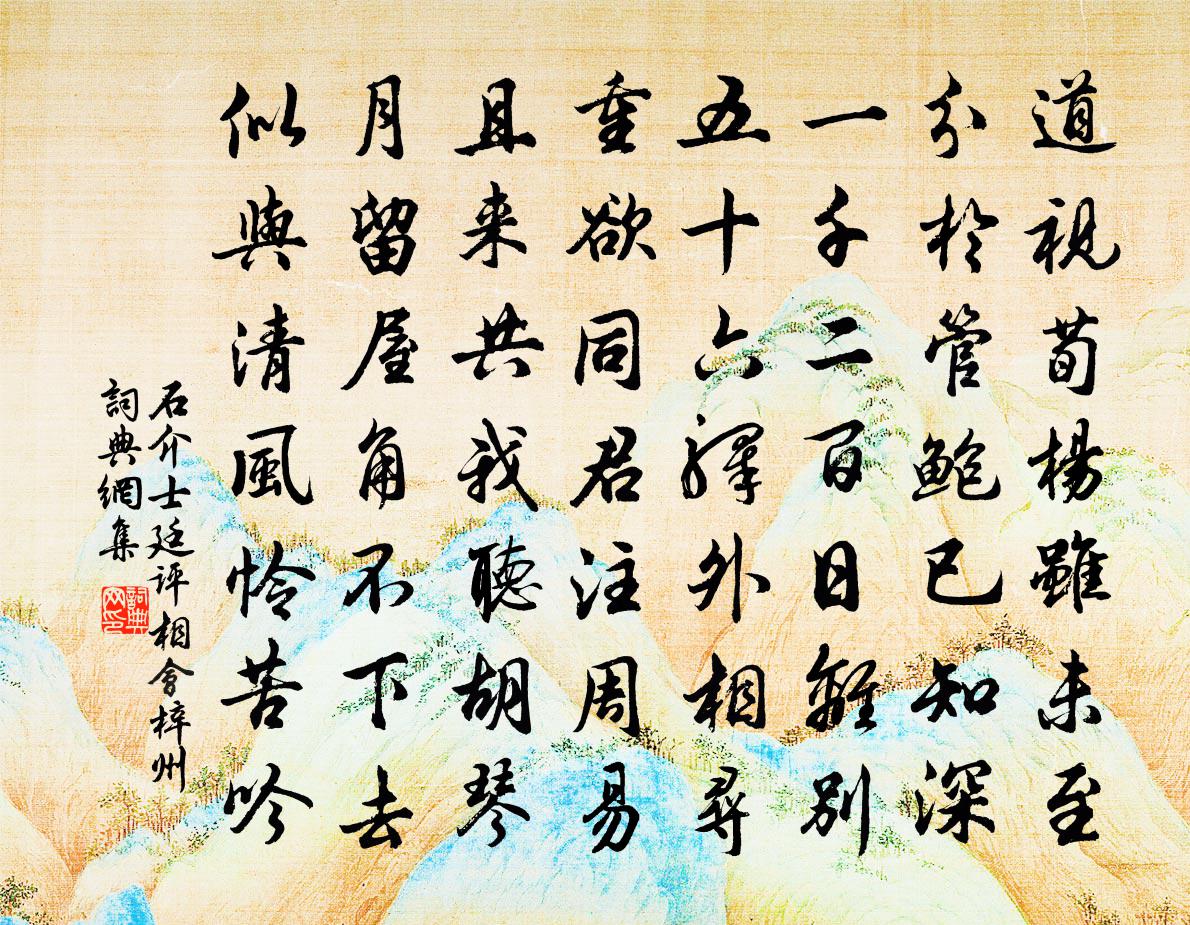 道視荀楊雖未至
分於管鮑已知深
一千二百日離別
五十六驛外相尋
重欲同君注周易
且来共我聽胡琴
月留屋角不下去
似與清風怜苦吟
石介士廷評相會梓州
詞典網集
詞典網印